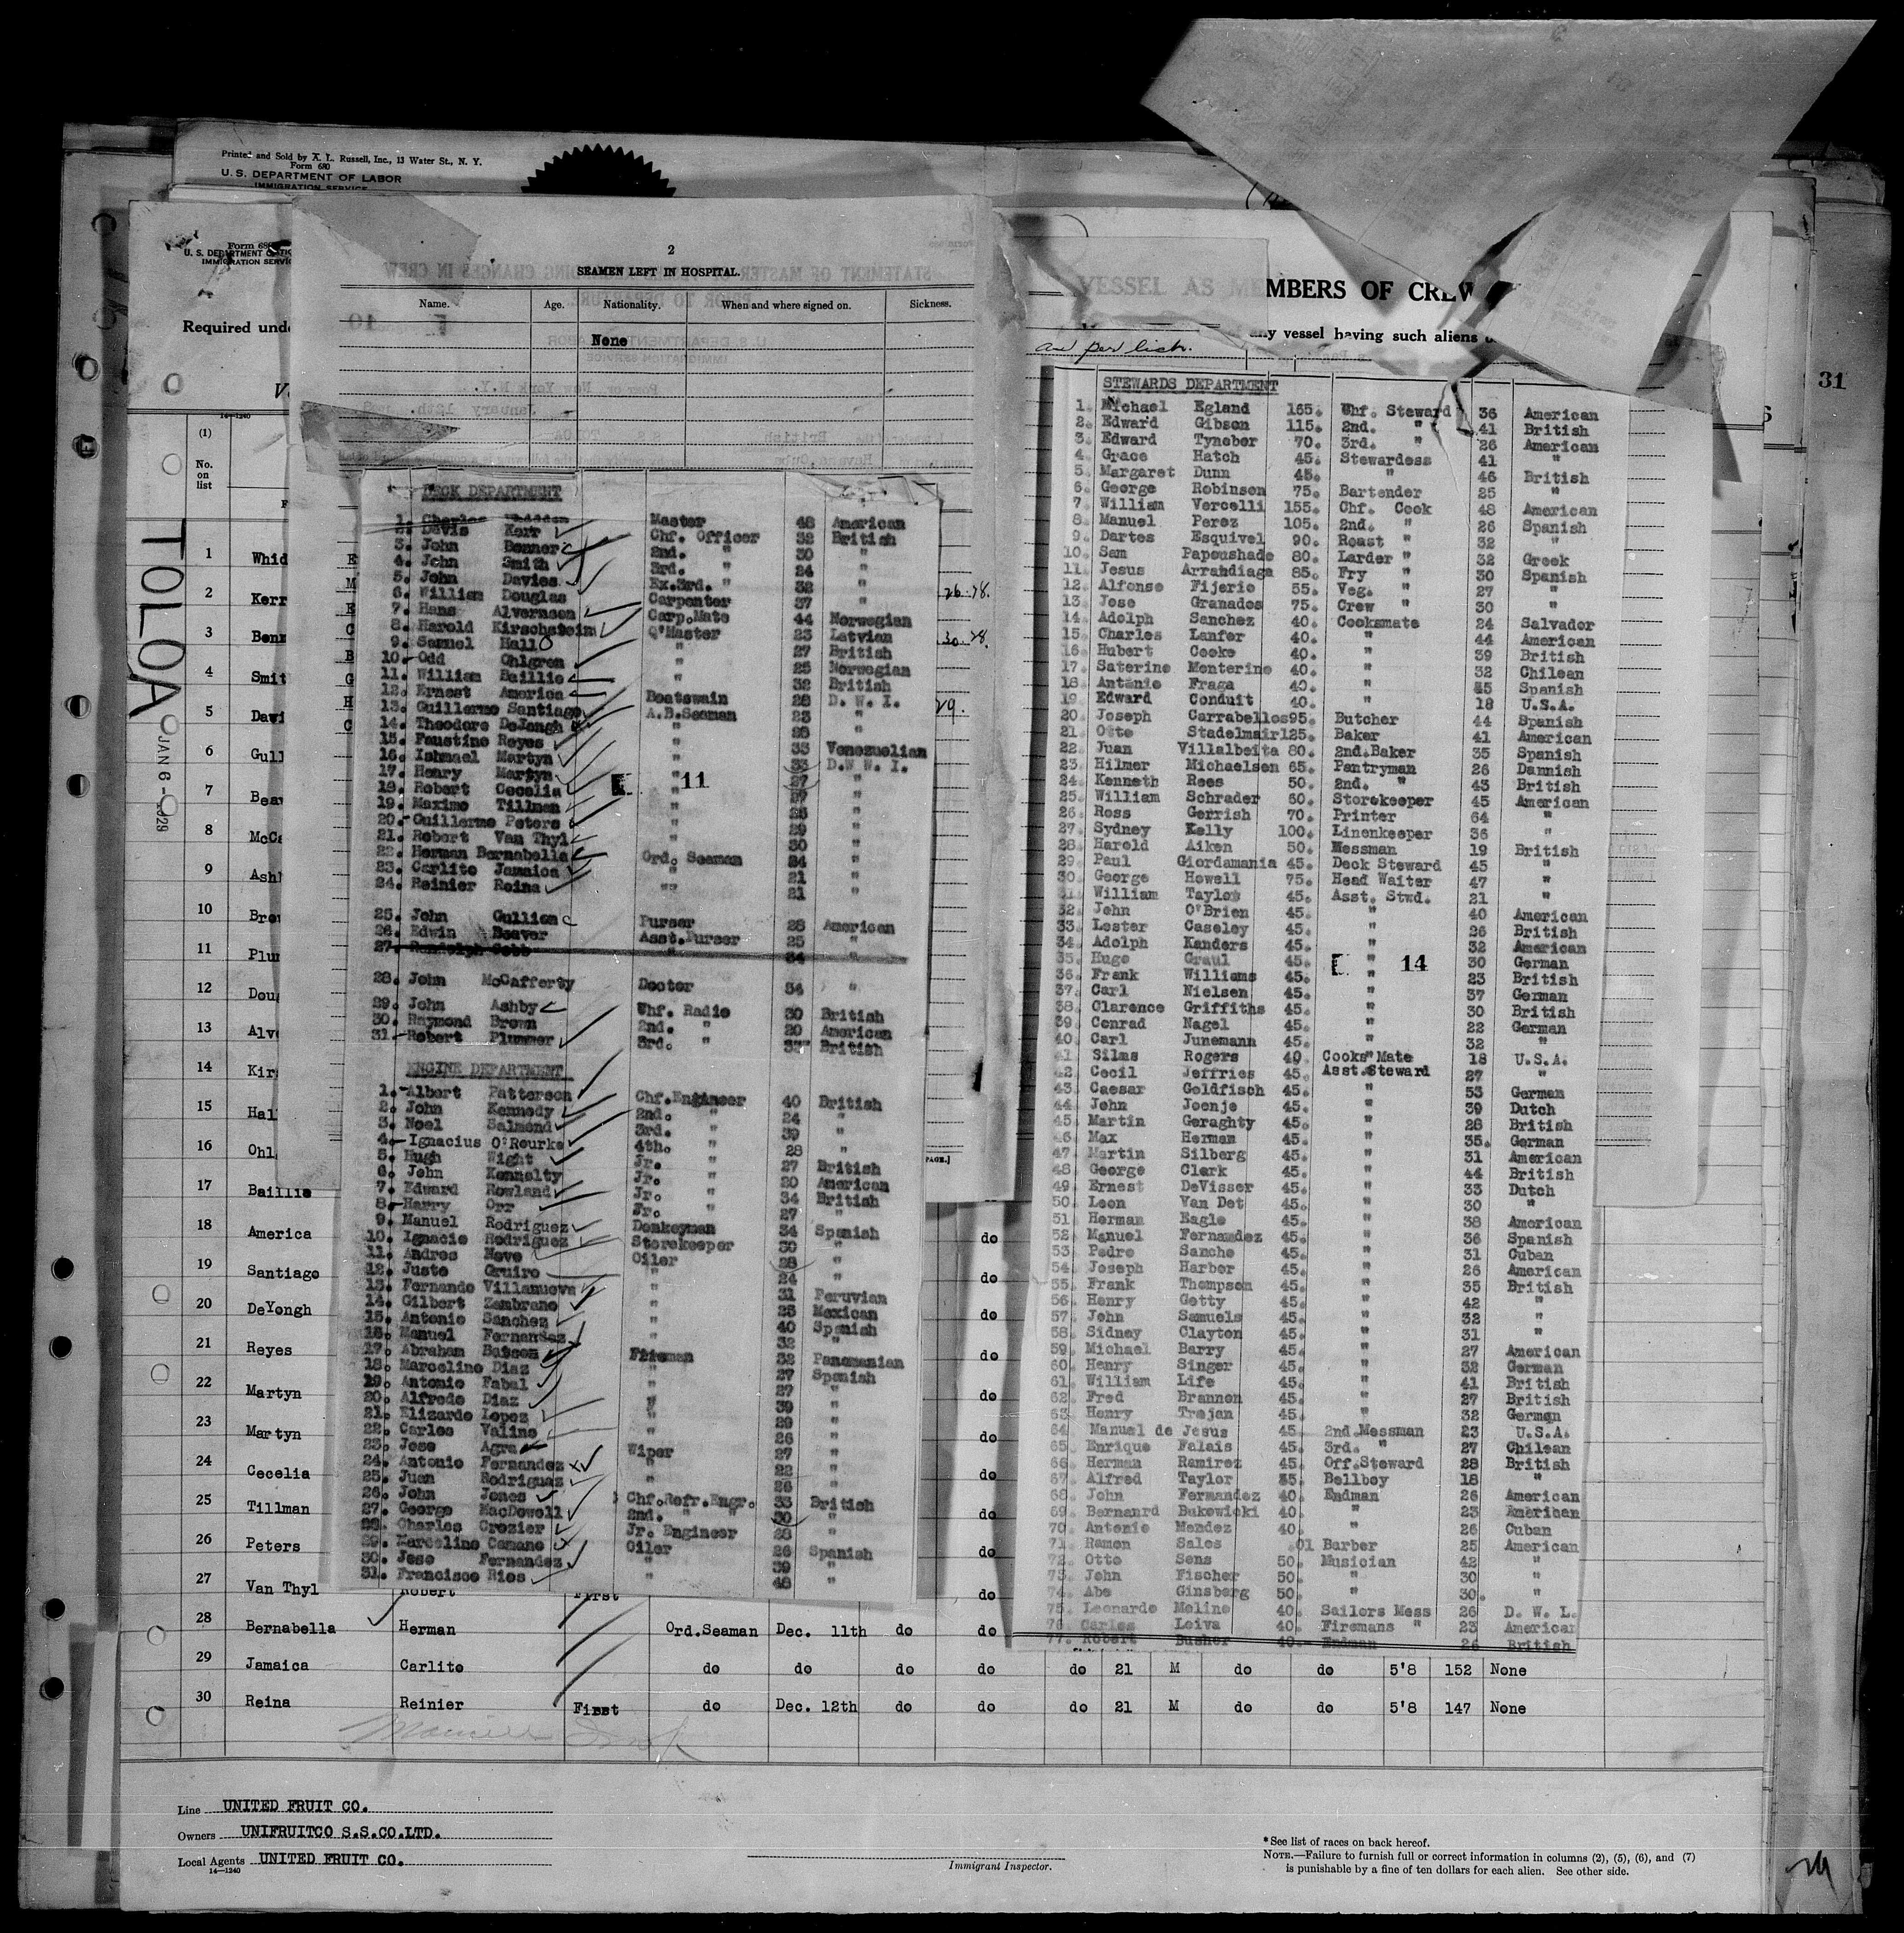 Printed and Sold by A. L. Russell, Inc., 13 Water St., N. Y.
Form 680
U. S. DEPARTMENT OF LABOR
IMMIGRATION SERVICE
Form 68
U. S. DEPARTMENT O
IMMIGRATION SERVIC
Required und
14-1240
(1)
No.
on
list
TOLOA
JAN 6 - 1929
2
SEAMEN LEFT IN HOSPITAL.
Name. Age. Nationality. When and where signed on. Sickness.
None
VESSEL AS MEMBERS OF CREW
any vessel having such aliens
as per list.
31
DECK DEPARTMENT
1. Charles Whidden Master 48 American
2. Davis Kerr Chf. Officer 32 British
3. John Benner 2nd. " 30 "
4. John Smith 3rd. " 24 "
5. John Davies Ex.3rd. " 32 "
6. William Douglas Carpenter 37 "
7. Hans Alvernsen Carp.Mate 44 Norwegian
8. Harold Kirschstein Q'Master 23 Latvian
9. Samuel Hall " 27 British
10. Odd Ohlgren " 25 Norwegian
11. William Baillie " 32 British
12. Ernest America Boatswain 28 D. W. I.
13. Guillermo Santiago A.B.Seaman 23 "
14. Theodore DeJongh " 28 "
15. Faustino Reyes " 33 Venezuelian
16. Ishmael Martyn " 33 D.W W. I.
17. Henry Martyn " 27 "
18. Robert Cecelia " 27 "
19. Maximo Tillman " 28 "
20. Guillermo Peters " 29 "
21. Robert Van Thyl " 30 "
22. Herman Bernabella Ord. Seaman 24 "
23. Carlito Jamaica " 21 "
24. Reinier Reina "" 21 "
E 11
25. John Gullion Purser 28 American
26. Edwin Beaver Asst.Purser 25 "
27. Randolph Cobb " 34 "
28. John McCafferty Doctor 54 "
29. John Ashby Chf. Radio 30 British
30. Raymond Brown 2nd. " 20 American
31. Robert Plummer 3rd. " 33 British
ENGINE DEPARTMENT
1. Albert Patterson Chf.Engineer 40 British
2. John Kennedy 2nd. " 24 "
3. Noel Salmond 3rd. " 39 "
4. Ignacius O'Rourke 4th. " 28 "
5. Hugh Wight Jr. " 27 British
6. John Kennelty Jr. " 20 American
7. Edward Rowland Jr. " 34 British
8. Harry Orr Jr. " 27 "
9. Manuel Rodriguez Donkeyman 34 Spanish
10. Ignacio Rodriguez Storekeeper 30 "
11. Andres Novo Oiler 28 "
12. Justo Qruiro " 24 "
13. Fernando Villanueva " 31 Peruvian
14. Gilbert Zambrano " 25 Mexican
15. Antonio Sanchez " 40 Spanish
16. Manuel Fernandez " 32 "
17. Abraham Fireman 32 Panomanian
18. Marcelino Diaz " 27 Spanish
19. Antonio Fabal " 27 "
20. Alfredo Diaz " 39 "
21. Elizardo Lopez " 29 "
22. Carlos Valino " 26 "
23. Jose Agra Wiper 27 "
24. Antonio Fernandez " 22 "
25. Juan Rodriguez " 26 "
26. John Jones Chf.Refr.Engr. 33 British
27. George MacDowell 2nd. " " 30 "
28. Charles Crozier Jr. Engineer 28 "
29. Marcelino Camano Oiler 26 Spanish
30. Jose Fernandez " 39 "
31. Francisco Rios " 48 "
STEWARDS DEPARTMENT
1. Michael Egland 165. Chf. Steward 36 American
2. Edward Gibson 115. 2nd. " 41 British
3. Edward Tynebor 70. 3rd. " 26 American
4. Grace Hatch 45. Stewardess 41 "
5. Margaret Dunn 45. " 46 British
6. George Robinson 75. Bartender 25 "
7. William Vercelli 155. Chf. Cook 48 American
8. Manuel Perez 105. 2nd. " 26 Spanish
9. Dartes Esquivel 90. Roast " 32 "
10. Sam Papoushado 80. Larder " 32 Greek
11. Jesus Arrahdiaga 85. Fry " 30 Spanish
12. Alfonso Fijerio 55. Veg. " 27 "
13. Jose Granados 75. Crew " 30 "
14. Adolph Sanchez 40. Cooksmate 24 Salvador
15. Charles Lanfer 40. " 44 American
16. Hubert Cooke 40. " 39 British
17. Saterino Monterino 40. " 32 Chilean
18. Antonio Fraga 40. " 45 Spanish
19. Edward Conduit 40. " 18 U.S.A.
20. Joseph Carrabellos95. Butcher 44 Spanish
21. Otto Stadelmair125. Baker 41 American
22. Juan Villalbeita 80. 2nd.Baker 35 Spanish
23. Hilmer Michaelsen 65. Pantryman 26 Dannish
24. Kenneth Rees 50. 2nd. " 43 British
25. William Schrader 60. Storekeeper 45 American
26. Ross Gerrish 70. Printer 64 "
27. Sydney Kelly 100. Linenkeeper 36 "
28. Harold Aiken 50. Messman 19 British
29. Paul Giordamania 45. Deck Steward 45 "
30. George Howell 75. Head Waiter 47 "
31. William Taylor 45. Asst. Stwd. 21 "
32. John O'Brien 45. " 40 American
33. Lester Caseley 45. " 26 British
34. Adolph Kanders 45. " 32 American
35. Hugo Graul 45. " 30 German
36. Frank Williams 45. " 23 British
37. Carl Nielsen 45. " 37 German
38. Clarence Griffiths 45. " 30 British
39. Conrad Nagel 45. " 22 German
40. Carl Junemann 45. " 32 "
41. Silas Rogers 40. Cooks" Mate 18 U.S.A.
42. Cecil Jeffries 45. Asst.Steward 27 "
43. Caesar Goldfisch 45. " 53 German
44. John Joenje 45. " 39 Dutch
45. Martin Geraghty 45. " 28 British
46. Max Herman 45. " 35. German
47. Martin Silberg 45. " 31 American
48. George Clark 45. " 44 British
49. Ernest DeVisser 45. " 33 Dutch
50. Leon Van Det 45. " 30 "
51. Herman Eagle 45. " 38 American
52. Manuel Fernandez 45. " 36 Spanish
53. Pedro Sancho 45. " 31 Cuban
54. Joseph Harbor 45. " 26 American
55. Frank Thompson 45. " 35 British
56. Henry Getty 45. " 42 "
57. John Samuels 45. " 32 "
58. Sidney Clayton 45. " 31 "
59. Michael Barry 45. " 27 American
60. Henry Singer 45. " 32 German
61. William Life 45. " 41 British
62. Fred Brannon 45. " 27 British
63. Henry Trojan 45. " 32 German
64. Manuel de Jesus 45. 2nd.Messman 23 U.S.A.
65. Enrique Falais 45. 3rd. " 27 Chilean
66. Herman Ramirez 45. Off.Steward 28 British
67. Alfred Taylor 35. Bellboy 18 "
68. John Fernandez 40. Endman 26 American
69. Bernanrd Bukowicki 40. " 23 American
70. Antonio Mendez 40. " 26 Cuban
71. Ramon Sales .01 Barber 25 American
72. Otto Sens 50. Musician 42 "
73. John Fischer 50. " 30 "
74. Abe Ginsberg 50. " 30. "
75. Leonardo Meline 40. Sailors Mess 26 D. W. I.
76. Carlos Leiva 40. Firemans " 23 American
77. Robert Busher 40. Endman 26 British
E 14
1 Whid
2 Kerr
3 Benn
4 Smit
5 Davi
6 Gull
7 Beav
8 McCa
9 Ashb
10 Brow
11 Plum
12 Doug
13 Alve
14 Kirs
15 Hal
16 Ohl
17 Baillie
18 America do
19 Santiago do
20 DeYongh do
21 Reyes do
22 Martyn do
23 Martyn do
24 Cecelia do
25 Tillman do
26 Peters do
27 Van Thyl Robert First do
28 Bernabella Herman Ord.Seaman Dec. 11th do do
29 Jamaica Carlito do do do do do 21 M do do 5'8 152 None
30 Reina Reinier First do Dec. 12th do do do 21 M do do 5'8 147 None
Line UNITED FRUIT CO.
Owners UNIFRUITCO S.S.CO.LTD.
Local Agents UNITED FRUIT CO.
14—1240
Immigrant Inspector.
*See list of races on back hereof.
NOTE.—Failure to furnish full or correct information in columns (2), (5), (6), and (7)
is punishable by a fine of ten dollars for each alien. See other side.